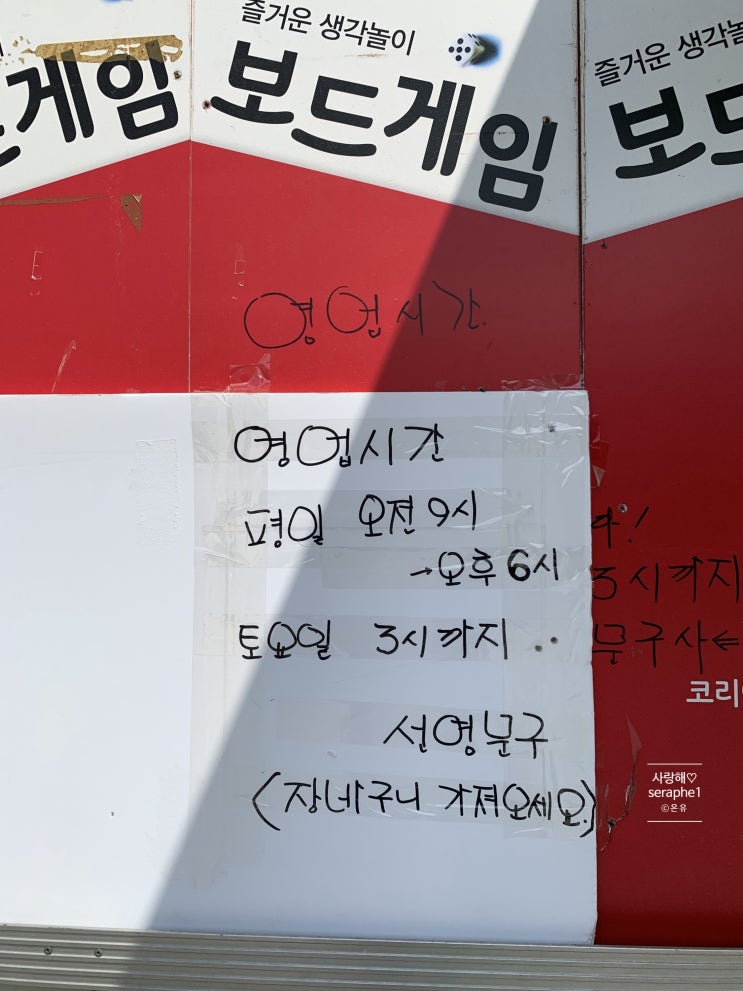 즐거운 생각놀이
보드게임
드게임
즐거운 생각놀
보드
영업시간
영업시간
평일 오전 9시
→오후 6시
토요일 3시까지
선영문구
(장바구니 가져오세요.)
3시까지
문구사⇐
코리
사랑해♡
seraphe1
ⓒ온유